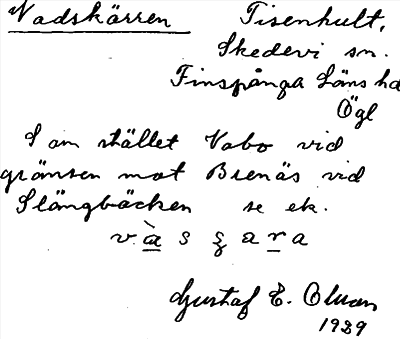 Vadskärren Tisenhult,
Skedevi sn.
Finspånga Läns hd
Ögl
S om stället Vabo vid
gränsen mot Brenäs vid
Slängbäcken se ek.
Gustaf E.
1939